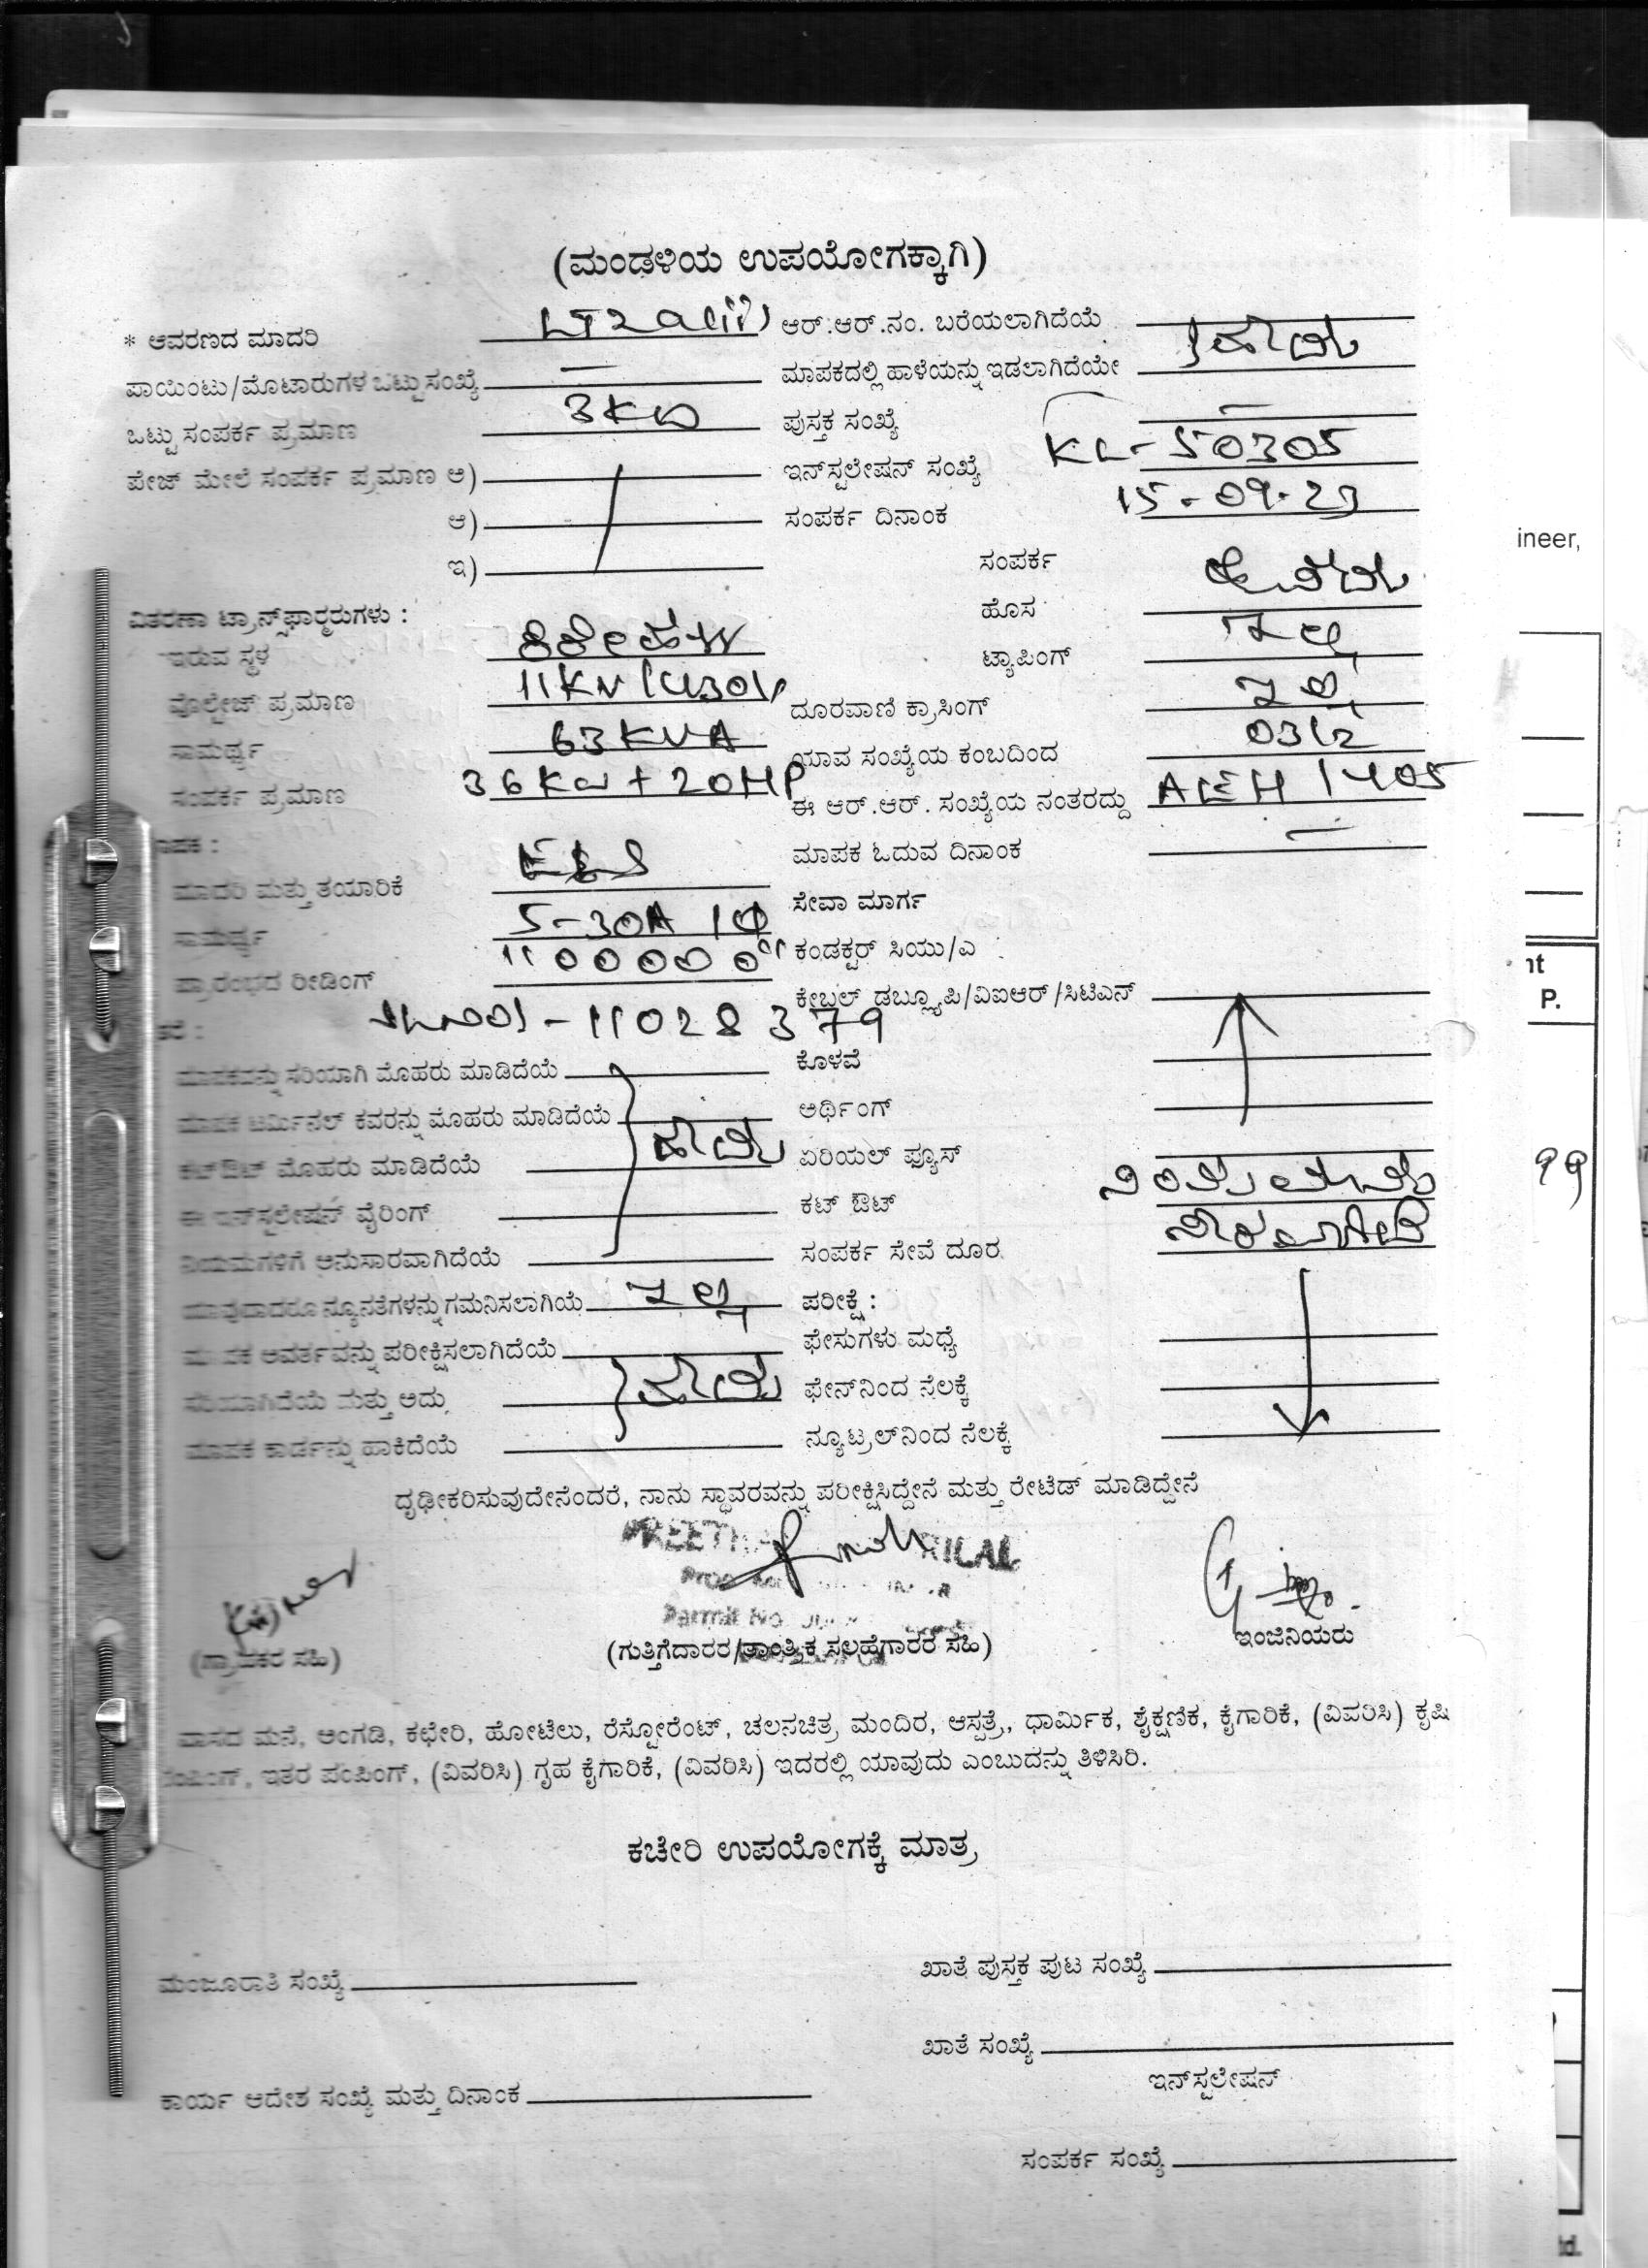 (ಮಂಡಳಿಯ ಉಪಯೋಗಕ್ಕಾಗಿ)
* ಆವರಣದ ಮಾದರಿ LT2a(ii) ಆರ್.ಆರ್.ನಂ. ಬರೆಯಲಾಗಿದೆಯೆ ಹೌದು
ಪಾಯಿಂಟು/ಮೊಟಾರುಗಳ ಒಟ್ಟು ಸಂಖ್ಯೆ — ಮಾಪಕದಲ್ಲಿ ಹಾಳೆಯನ್ನು ಇಡಲಾಗಿದೆಯೇ
ಒಟ್ಟು ಸಂಪರ್ಕ ಪ್ರಮಾಣ 3KW ಪುಸ್ತಕ ಸಂಖ್ಯೆ —
ಪೇಜ್ ಮೇಲೆ ಸಂಪರ್ಕ ಪ್ರಮಾಣ ಅ) ಇನ್‌ಸ್ಟಲೇಷನ್ ಸಂಖ್ಯೆ KL-50305
ಆ) ಸಂಪರ್ಕ ದಿನಾಂಕ 15-09-23
ಇ) ಸಂಪರ್ಕ
ವಿತರಣಾ ಟ್ರಾನ್ಸ್‌ಫಾರ್ಮರುಗಳು : ಹೊಸ
ಇರುವ ಸ್ಥಳ ಟ್ಯಾಪಿಂಗ್ ಇಲ್ಲ
ವೊಲ್ಟೇಜ್ ಪ್ರಮಾಣ 11KV/430V ದೂರವಾಣಿ ಕ್ರಾಸಿಂಗ್ ಇಲ್ಲ
ಸಾಮರ್ಥ್ಯ 63KVA ಯಾವ ಸಂಖ್ಯೆಯ ಕಂಬದಿಂದ 03/2
ಸಂಪರ್ಕ ಪ್ರಮಾಣ 36KW+20HP ಈ ಆರ್.ಆರ್. ಸಂಖ್ಯೆಯ ನಂತರದ್ದು AEH 1405
ಮಾಪಕ ಓದುವ ದಿನಾಂಕ —
ಮಾದರಿ ಮತ್ತು ತಯಾರಿಕೆ ಸೇವಾ ಮಾರ್ಗ
ಸಾಮರ್ಥ್ಯ 5-30A 1Φ ಕಂಡಕ್ಟರ್ ಸಿಯು/ಎ :
ಪ್ರಾರಂಭದ ರೀಡಿಂಗ್ "00000" ಕೇಬಲ್ ಡಬ್ಲ್ಯೂಪಿ/ವಿಐಆರ್/ಸಿಟಿಎನ್
11028379
ಮಾಪಕವನ್ನು ಸರಿಯಾಗಿ ಮೊಹರು ಮಾಡಿದೆಯೆ ಕೊಳವೆ
ಮಾಪಕ ಟರ್ಮಿನಲ್ ಕವರನ್ನು ಮೊಹರು ಮಾಡಿದೆಯೆ ಹೌದು ಅರ್ಥಿಂಗ್
ಕಟ್‌ಔಟ್ ಮೊಹರು ಮಾಡಿದೆಯೆ ಏರಿಯಲ್ ಫ್ಯೂಸ್
ಈ ಇನ್‌ಸ್ಟಲೇಷನ್ ವೈರಿಂಗ್ ಕಟ್ ಔಟ್
ನಿಯಮಗಳಿಗೆ ಅನುಸಾರವಾಗಿದೆಯೆ ಸಂಪರ್ಕ ಸೇವೆ ದೂರ
ಯಾವುದಾದರೂ ನ್ಯೂನತೆಗಳನ್ನು ಗಮನಿಸಲಾಗಿಯೆ ಇಲ್ಲ ಪರೀಕ್ಷೆ :
ಮಾಪಕ ಆವರ್ತವನ್ನು ಪರೀಕ್ಷಿಸಲಾಗಿದೆಯೆ ಫೇಸುಗಳು ಮಧ್ಯೆ
ಸರಿಯಾಗಿದೆಯೆ ಮತ್ತು ಅದು ಹೌದು ಫೇನ್‌ನಿಂದ ನೆಲಕ್ಕೆ
ಮಾಪಕ ಕಾರ್ಡನ್ನು ಹಾಕಿದೆಯೆ ನ್ಯೂಟ್ರಲ್‌ನಿಂದ ನೆಲಕ್ಕೆ
ದೃಢೀಕರಿಸುವುದೇನೆಂದರೆ, ನಾನು ಸ್ಥಾವರವನ್ನು ಪರೀಕ್ಷಿಸಿದ್ದೇನೆ ಮತ್ತು ರೇಟೆಡ್ ಮಾಡಿದ್ದೇನೆ
Permit No
(ಗ್ರಾಹಕರ ಸಹಿ) (ಗುತ್ತಿಗೆದಾರರ/ತಾಂತ್ರಿಕ ಸಲಹೆಗಾರರ ಸಹಿ) ಇಂಜಿನಿಯರು
ವಾಸದ ಮನೆ, ಅಂಗಡಿ, ಕಛೇರಿ, ಹೋಟೆಲು, ರೆಸ್ಟೋರೆಂಟ್, ಚಲನಚಿತ್ರ ಮಂದಿರ, ಆಸ್ಪತ್ರೆ, ಧಾರ್ಮಿಕ, ಶೈಕ್ಷಣಿಕ, ಕೈಗಾರಿಕೆ, (ವಿವರಿಸಿ) ಕೃಷಿ
ಪಂಪಿಂಗ್, ಇತರ ಪಂಪಿಂಗ್, (ವಿವರಿಸಿ) ಗೃಹ ಕೈಗಾರಿಕೆ, (ವಿವರಿಸಿ) ಇದರಲ್ಲಿ ಯಾವುದು ಎಂಬುದನ್ನು ತಿಳಿಸಿರಿ.
ಕಚೇರಿ ಉಪಯೋಗಕ್ಕೆ ಮಾತ್ರ
ಮಂಜೂರಾತಿ ಸಂಖ್ಯೆ ಖಾತೆ ಪುಸ್ತಕ ಪುಟ ಸಂಖ್ಯೆ
ಖಾತೆ ಸಂಖ್ಯೆ
ಇನ್‌ಸ್ಟಲೇಷನ್
ಕಾರ್ಯ ಆದೇಶ ಸಂಖ್ಯೆ ಮತ್ತು ದಿನಾಂಕ
ಸಂಪರ್ಕ ಸಂಖ್ಯೆ
ineer,
P.